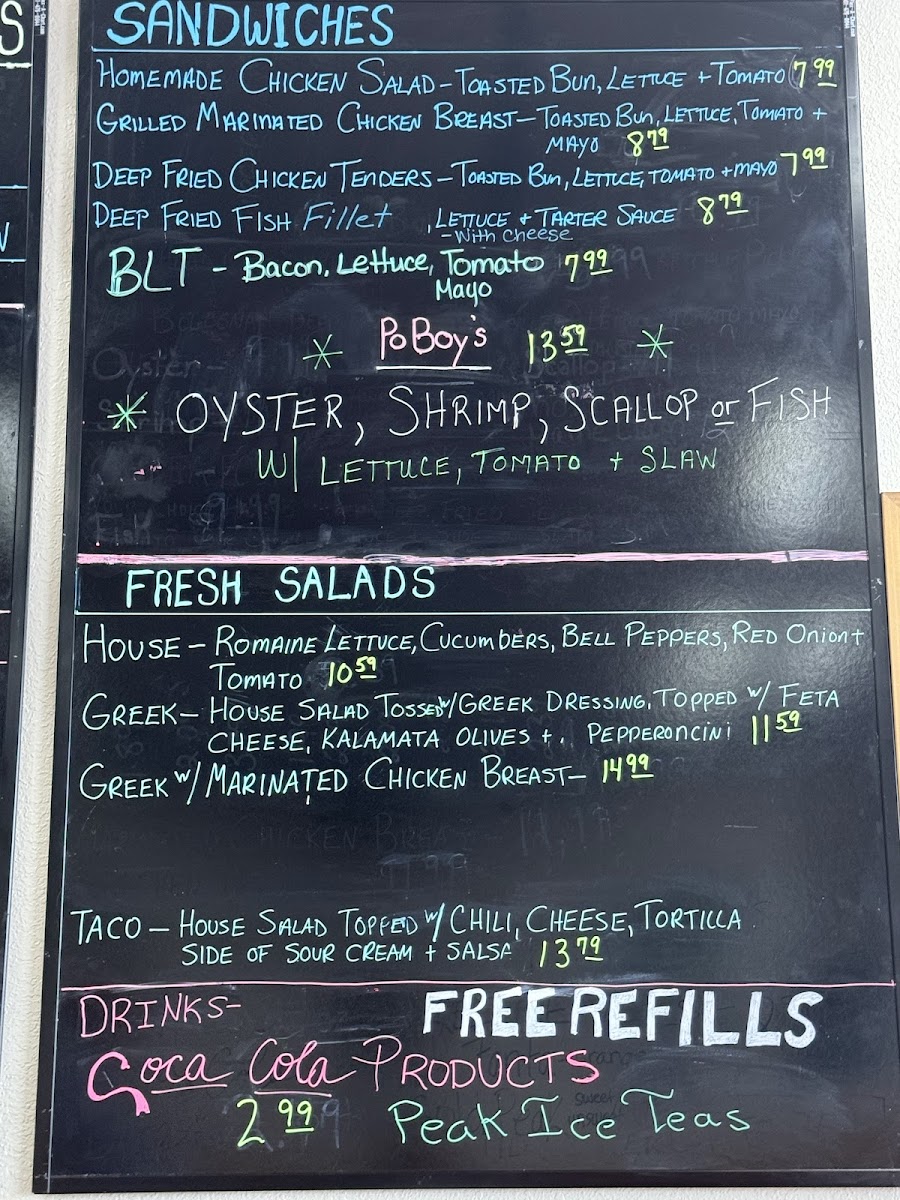 S
SANDWICHES
HOMEMADE CHICKEN SALAD - TOASTED BUN, LETTUCE + TOMATO 7.99
GRILLED MARINATED CHICKEN BREAST - TOASTED BUN, LETTUCE, TOMATO +
MAYO 8.79
DEEP FRIED CHICKEN TENDERS - TOASTED BUN, LETTUCE, TOMATO + MAYO 7.99
DEEP FRIED FISH Fillet , LETTUCE + TARTER SAUCE 8.79
- With cheese
BLT - Bacon, Lettuce, Tomato 7.99
Mayo
* Po Boy's 13.59 *
* OYSTER, SHRIMP, SCALLOP or FISH
W/ LETTUCE, TOMATO + SLAW
FRESH SALADS
HOUSE - ROMAINE LETTUCE, CUCUMBERS, BELL PEPPERS, RED ONION +
TOMATO 10.59
GREEK - HOUSE SALAD TOSSED W/ GREEK DRESSING, TOPPED W/ FETA
CHEESE, KALAMATA OLIVES +. PEPPERONCINI 11.59
GREEK W/ MARINATED CHICKEN BREAST - 14.99
TACO - HOUSE SALAD TOPPED W/ CHILI, CHEESE, TORTILLA
SIDE OF SOUR CREAM + SALSA 13.79
DRINKS- FREE REFILLS
Coca Cola PRODUCTS
2.99 Peak Ice Teas